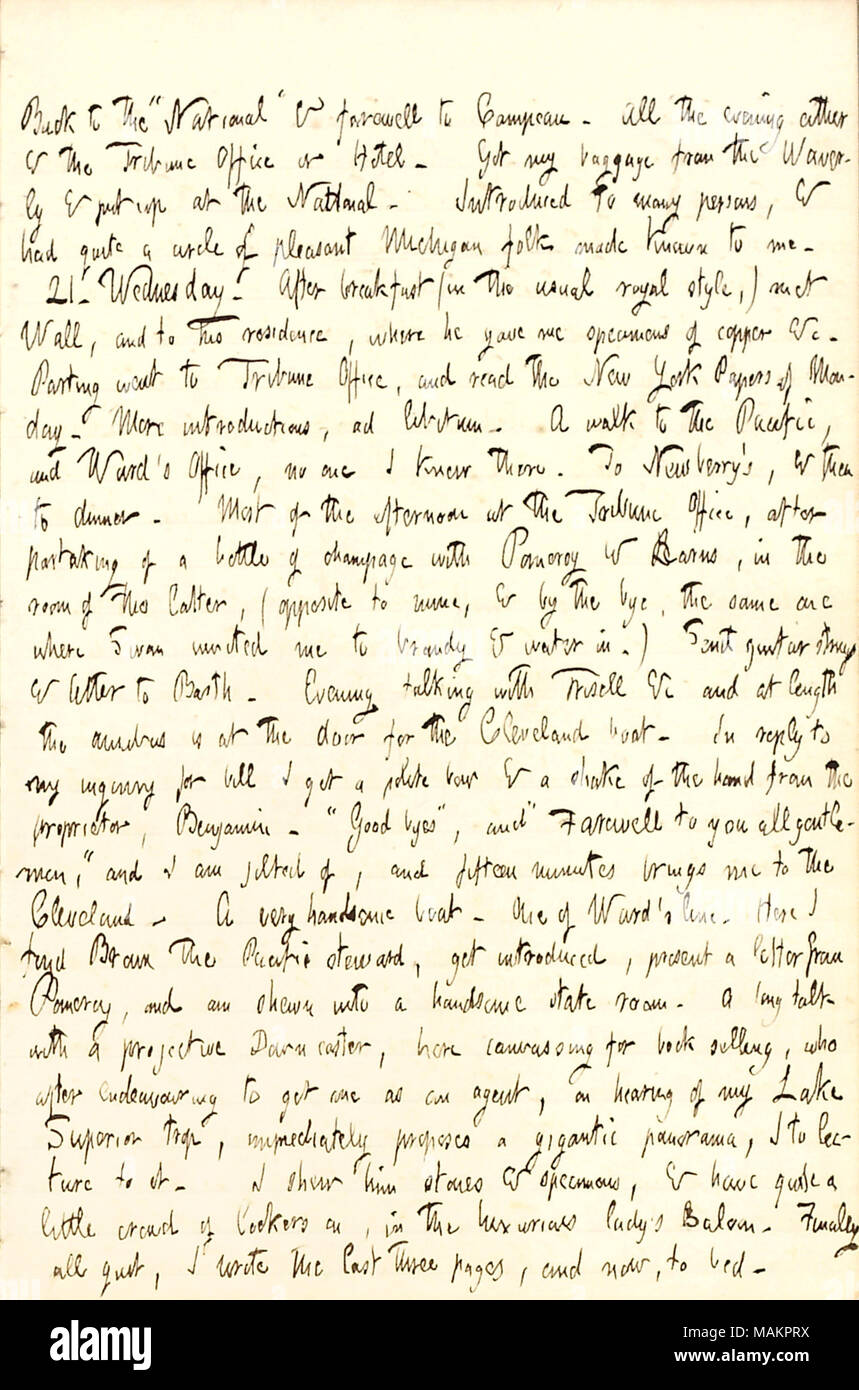 Back to the "National" & farewell to Campeau. All the evening either
& the Tribune Office or Hotel. Got my baggage from the Waver-
ly & put up at the National. Introduced to many persons, &
had quite a circle of pleasant Michigan folk made known to me.
21. Wednesday. After breakfast (in the usual royal style,) met
Wall, and to his residence, where he gave me specimens of copper &c.
Parting went to Tribune Office, and read the New York Papers of Mon-
day. More introductions, ad libitum. A walk to the Pacific,
and Ward's Office, no one I knew there. To Newberry's, & then
to dinner. Most of the afternoon at the Tribune Office, after
partaking of a bottle of champage with Pomeroy & Barns, in the
room of this latter, (opposite to mine, & by the bye, the same one
where Swan invited me to brandy & water in.) Sent guitar strings
& letter to Barth. Evening talking with &c and at length
the omnibus is at the door for the Cleveland boat. In reply to
my inquiry for bill I get a polite bow & a shake of the hand from the
proprietor, Benjamin. "Good byes", and "Farewell to you all gentle-
men," and I am jolted of, and fifteen minutes brings me to the
Cleveland. A very handsome boat. One of Ward's line. Here I
find Brown the Pacific steward, get introduced, present a letter from
Pomeroy, and am shewn into a handsome state room. A long talk
with a projective Down easter, here canvassing for book selling, who
after endeavouring to get me as an agent, on hearing of my Lake
Superior trip, immediately proposes a gigantic panorama, I to lec-
ture to it. I shew him stones & specimens, & have quite a
little crowd of lookers on, in the luxurious lady's Saloon. Finally
all quiet, I wrote the last three pages, and now, to bed.
alamy
Image ID: MAKPRX
www.alamy.com